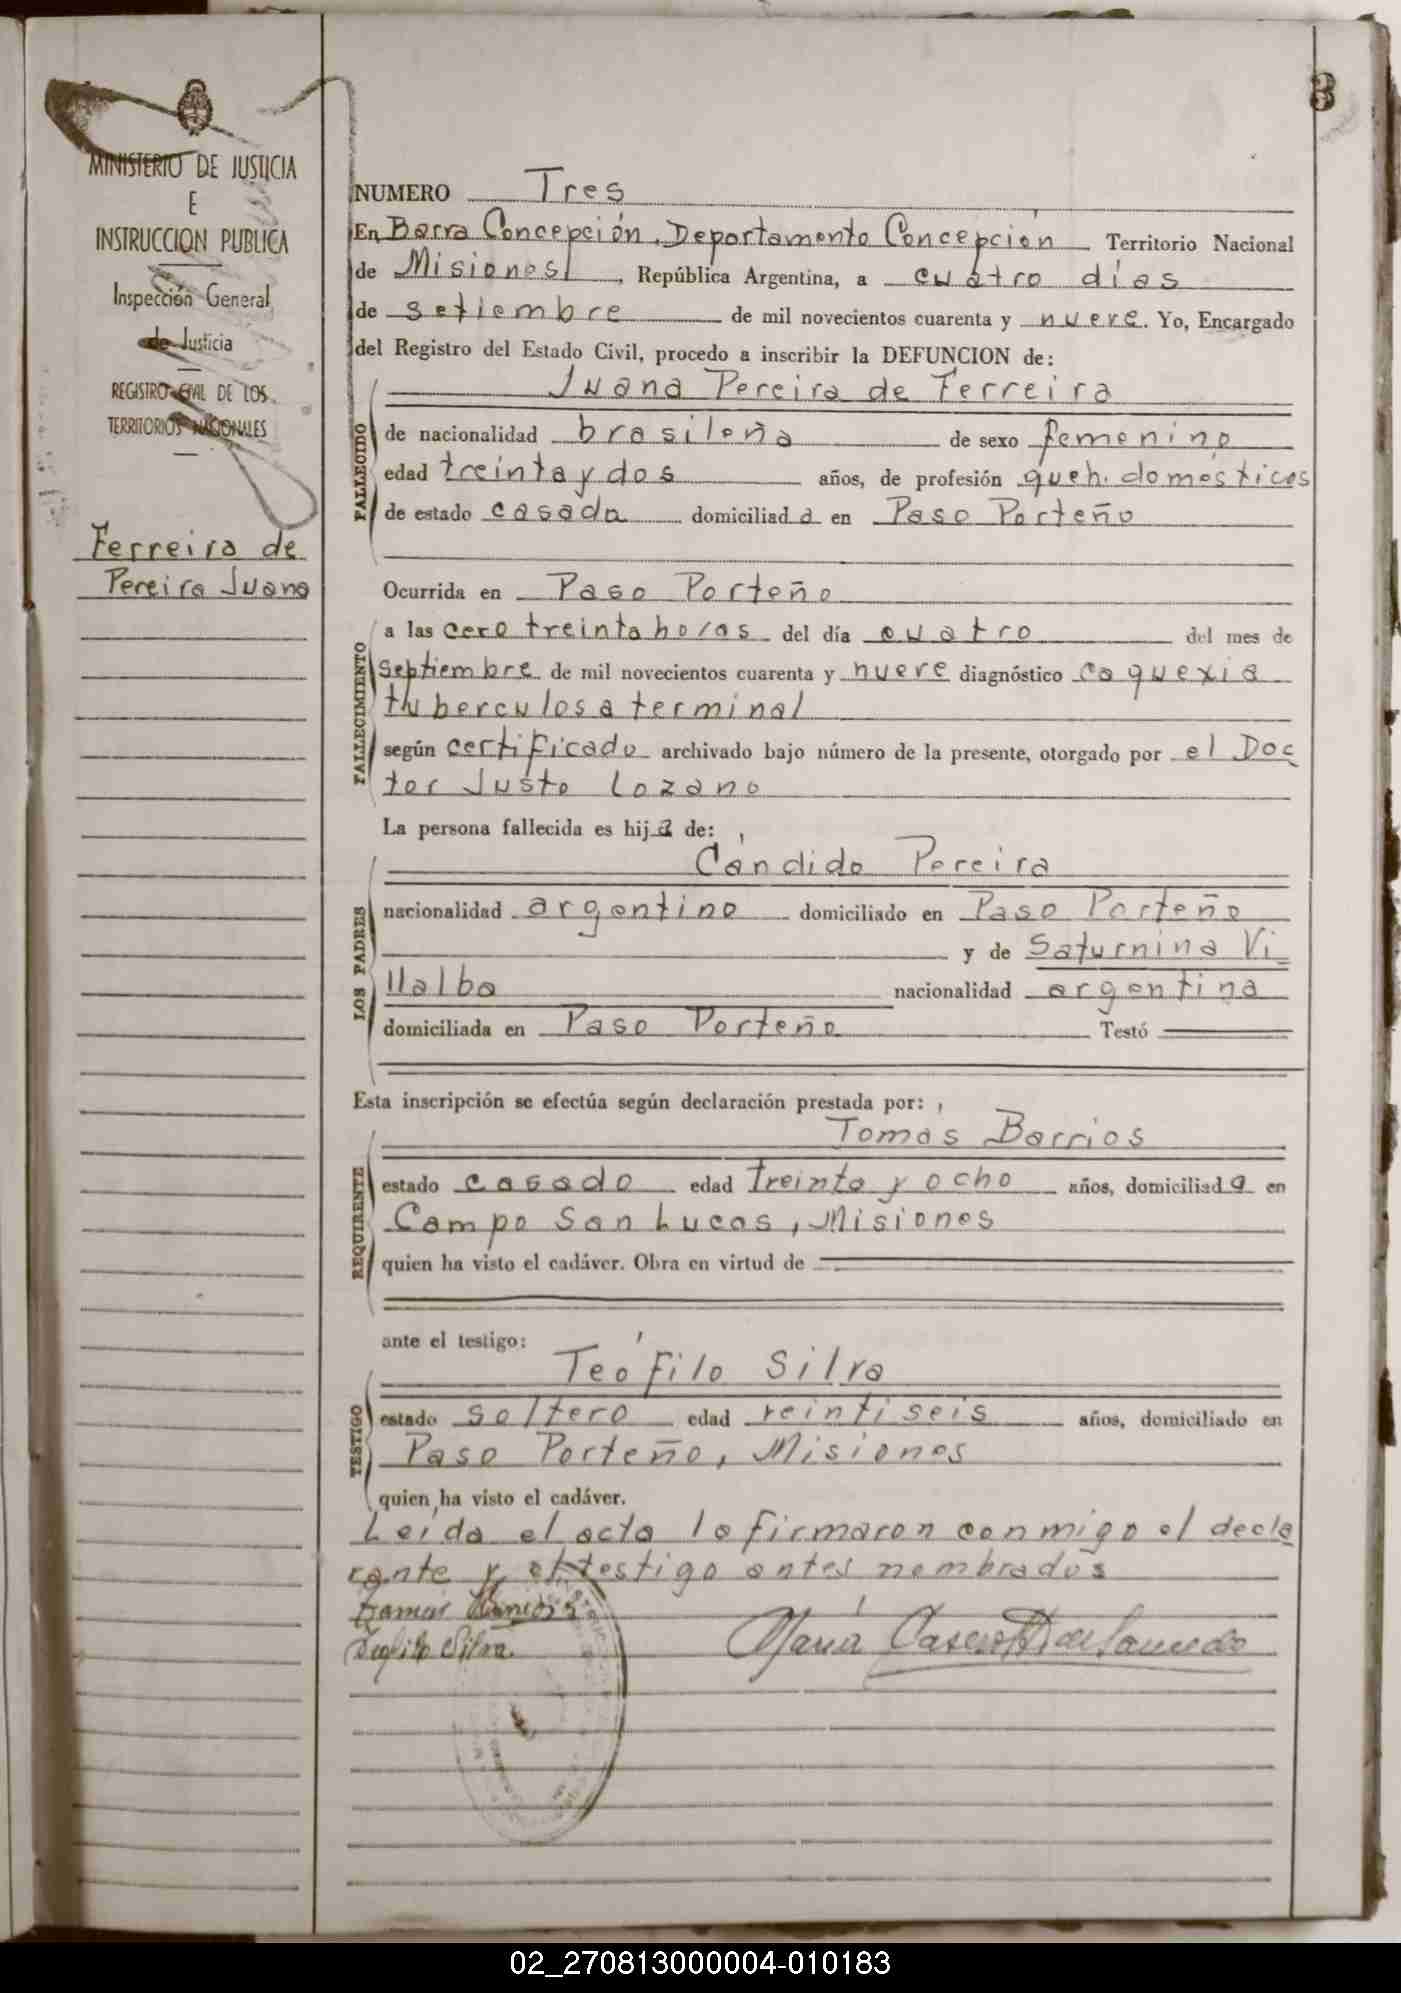 3
MINISTERIO DE JUSTICIA
E
INSTRUCCION PUBLICA
Inspección General
de Justicia
REGISTRO CIVIL DE LOS
TERRITORIOS NACIONALES
Ferreira de
Pereira Juana
NUMERO Tres
En Barra Concepción, Departamento Concepción Territorio Nacional
de Misiones, República Argentina, a cuatro días
de setiembre de mil novecientos cuarenta y nueve. Yo, Encargado
del Registro del Estado Civil, procedo a inscribir la DEFUNCION de:
Juana Pereira de Ferreira
FALLECIDO
de nacionalidad brasileña de sexo femenino
edad treinta y dos años, de profesión queh. domésticos
de estado casada domiciliada en Paso Porteño
Ocurrida en Paso Porteño
FALLECIMIENTO
a las cero treinta horas del día cuatro del mes de
septiembre de mil novecientos cuarenta y nueve diagnóstico caquexia
tuberculosa terminal
según certificado archivado bajo número de la presente, otorgado por el Doc
tor Justo Lozano
La persona fallecida es hija de:
Cándido Pereira
LOS PADRES
nacionalidad argentino domiciliado en Paso Porteño
y de Saturnina Vi
llalba nacionalidad argentina
domiciliada en Paso Porteño Testó
Esta inscripción se efectúa según declaración prestada por:
Tomás Barrios
REQUIRENTE
estado casado edad treinta y ocho años, domiciliado en
Campo San Lucas, Misiones
quien ha visto el cadáver. Obra en virtud de
ante el testigo:
Teófilo Silva
TESTIGO
estado soltero edad veintiseis años, domiciliado en
Paso Porteño, Misiones
quien ha visto el cadáver.
Leída el acta la firmaron conmigo el decla
rante y el testigo antes nombrados
Tomás Barrios
Teofilo Silva
María
02_270813000004-010183